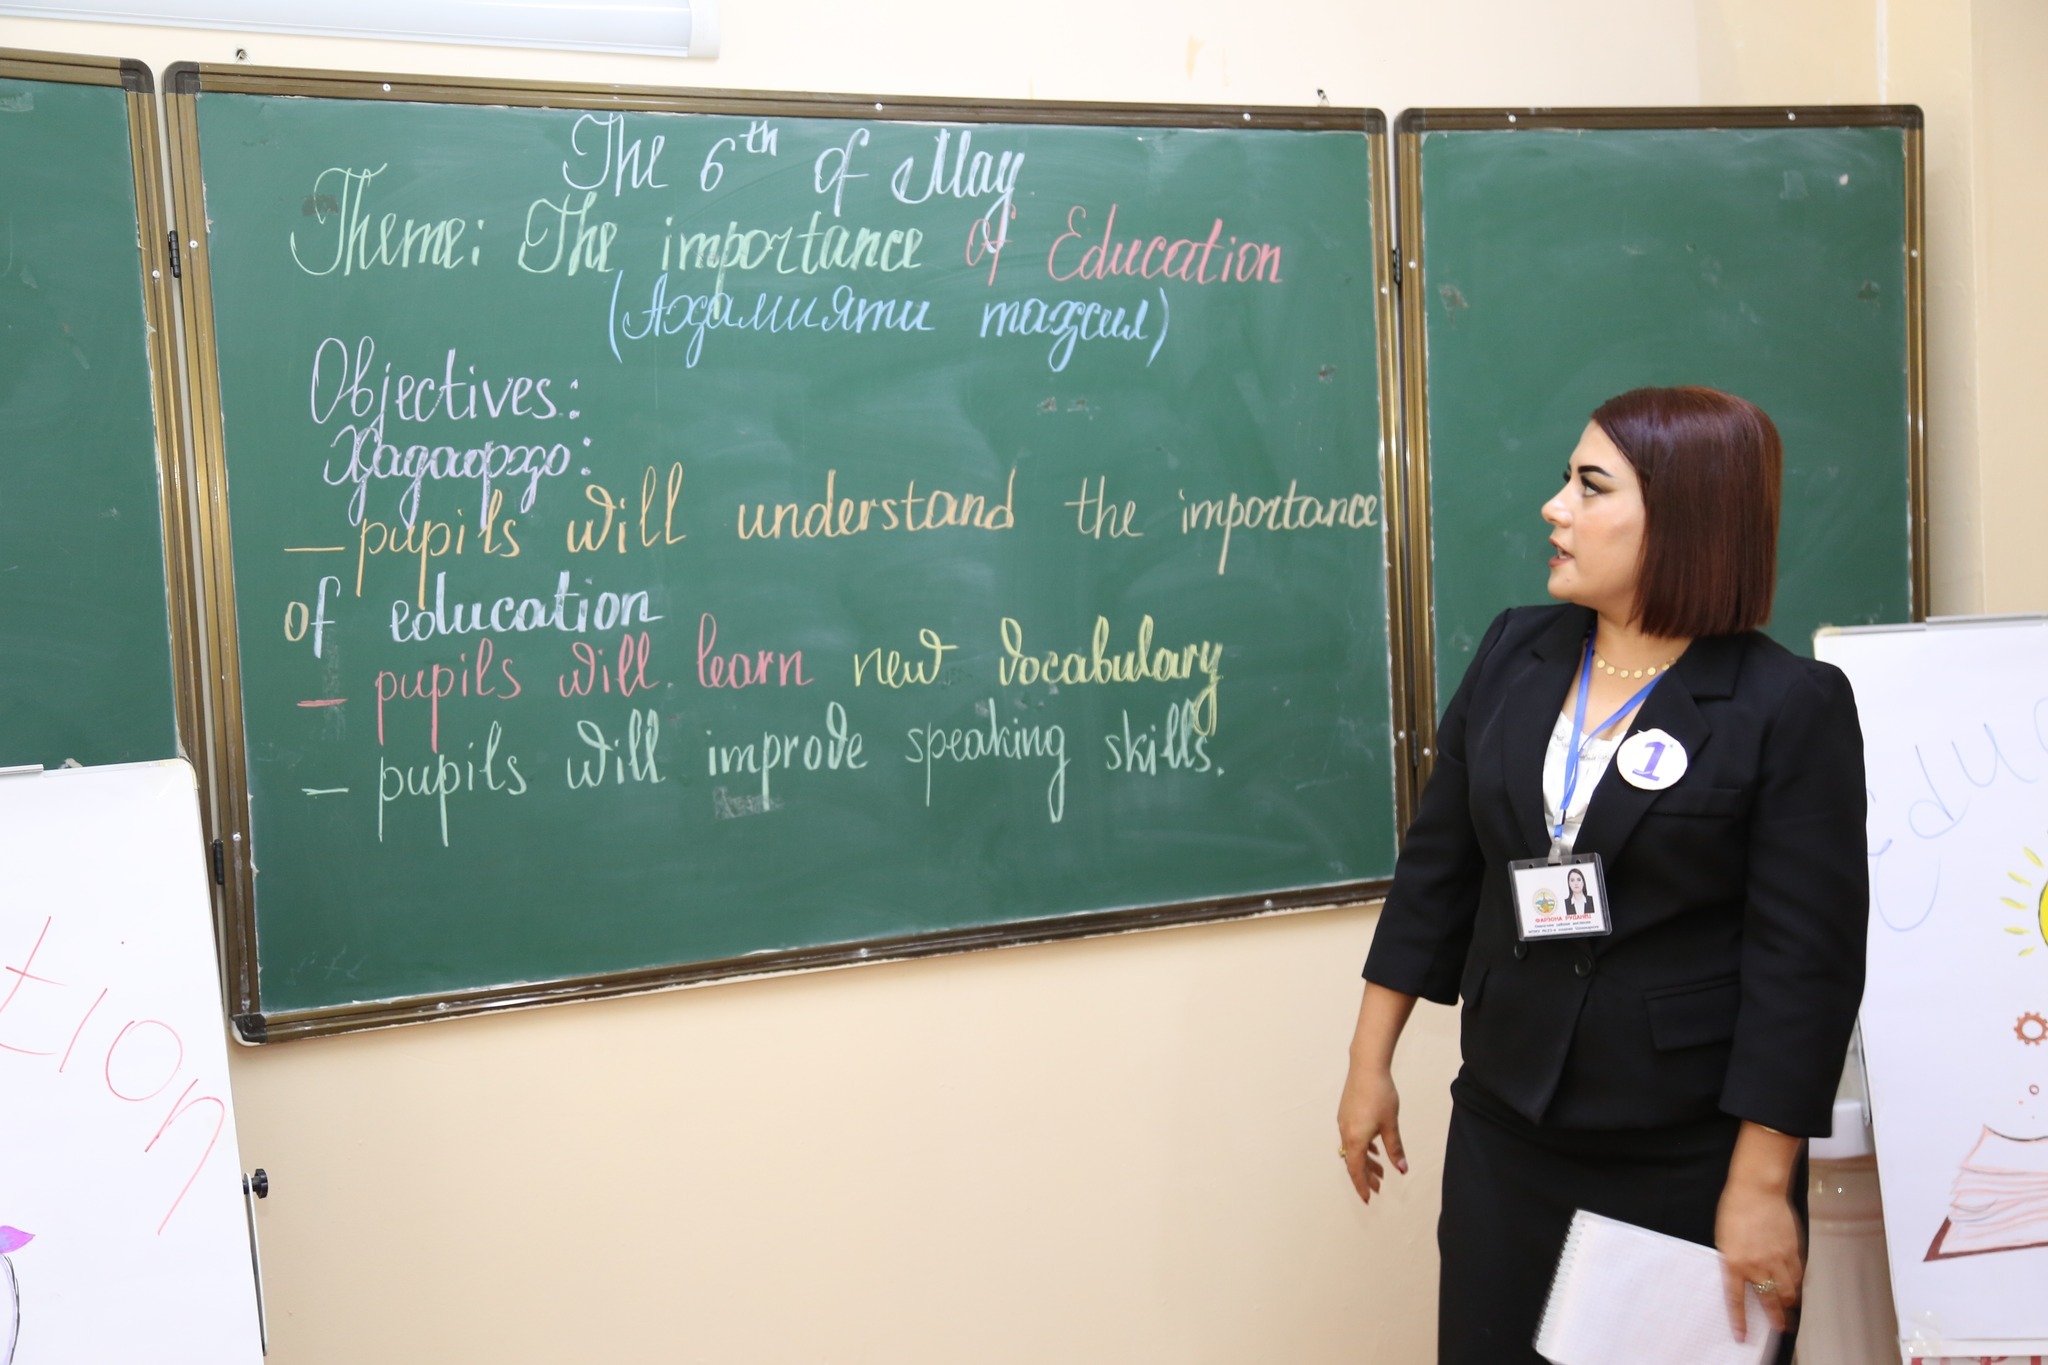 The 6th of May
Theme: The importance of Education
(Аҳамияти таҳсил)
Objectives:
Ҳадафҳо:
— pupils will understand the importance
of education
— pupils will learn new vocabulary
— pupils will improve speaking skills.
1
tion
Educ